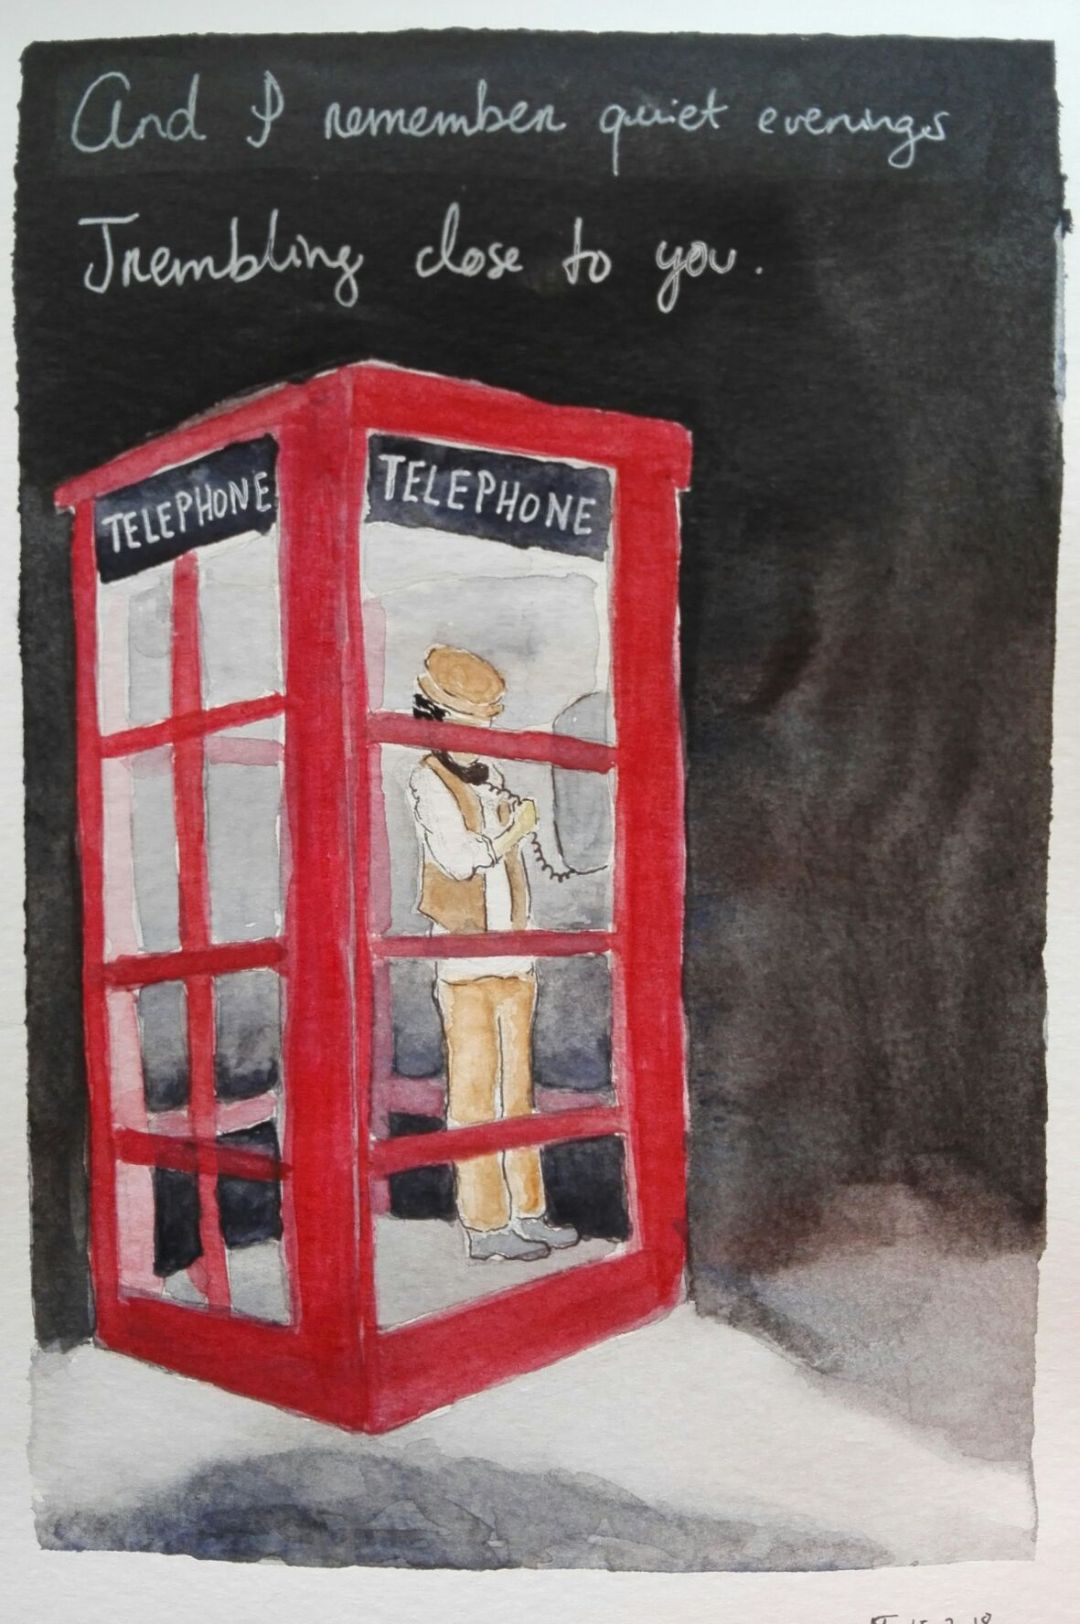 And I remember quiet evenings
Trembling close to you.
TELEPHONE
TELEPHONE